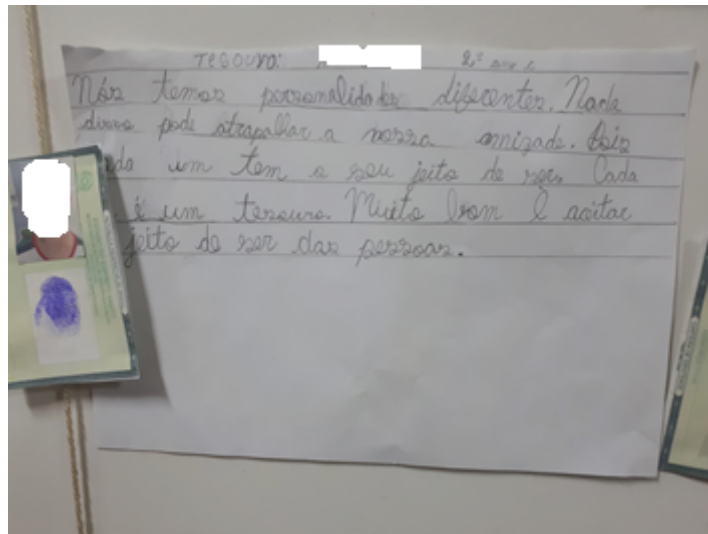 Tesouro: 2º ano
Nós temos personalidades diferentes. Nada
disso pode atrapalhar a nossa amizade. Pois
um tem o seu jeito de ser. Cada
é um tesouro. Muito bom é aceitar
jeito de ser das pessoas.